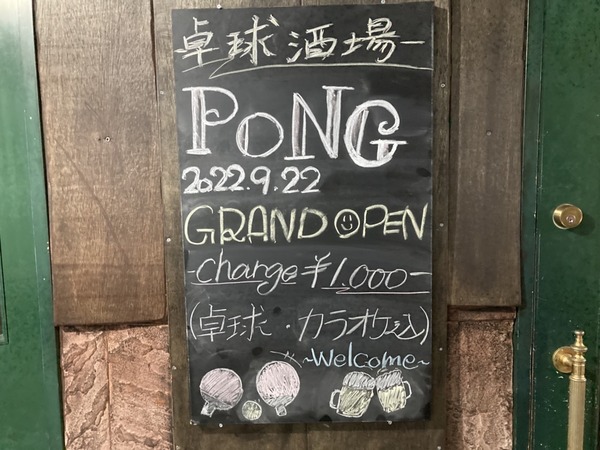 卓球酒場ー
PoNG
2022.9.22
GRAND OPEN
-Change ¥1.000-
(卓球・カラオケ込)
~Welcome~